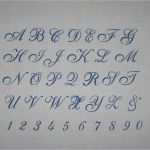 A B C D E F G
H I J K L M
N O P Q R S T
U V W X Y Z &
1 2 3 4 5 6 7 8 9 0